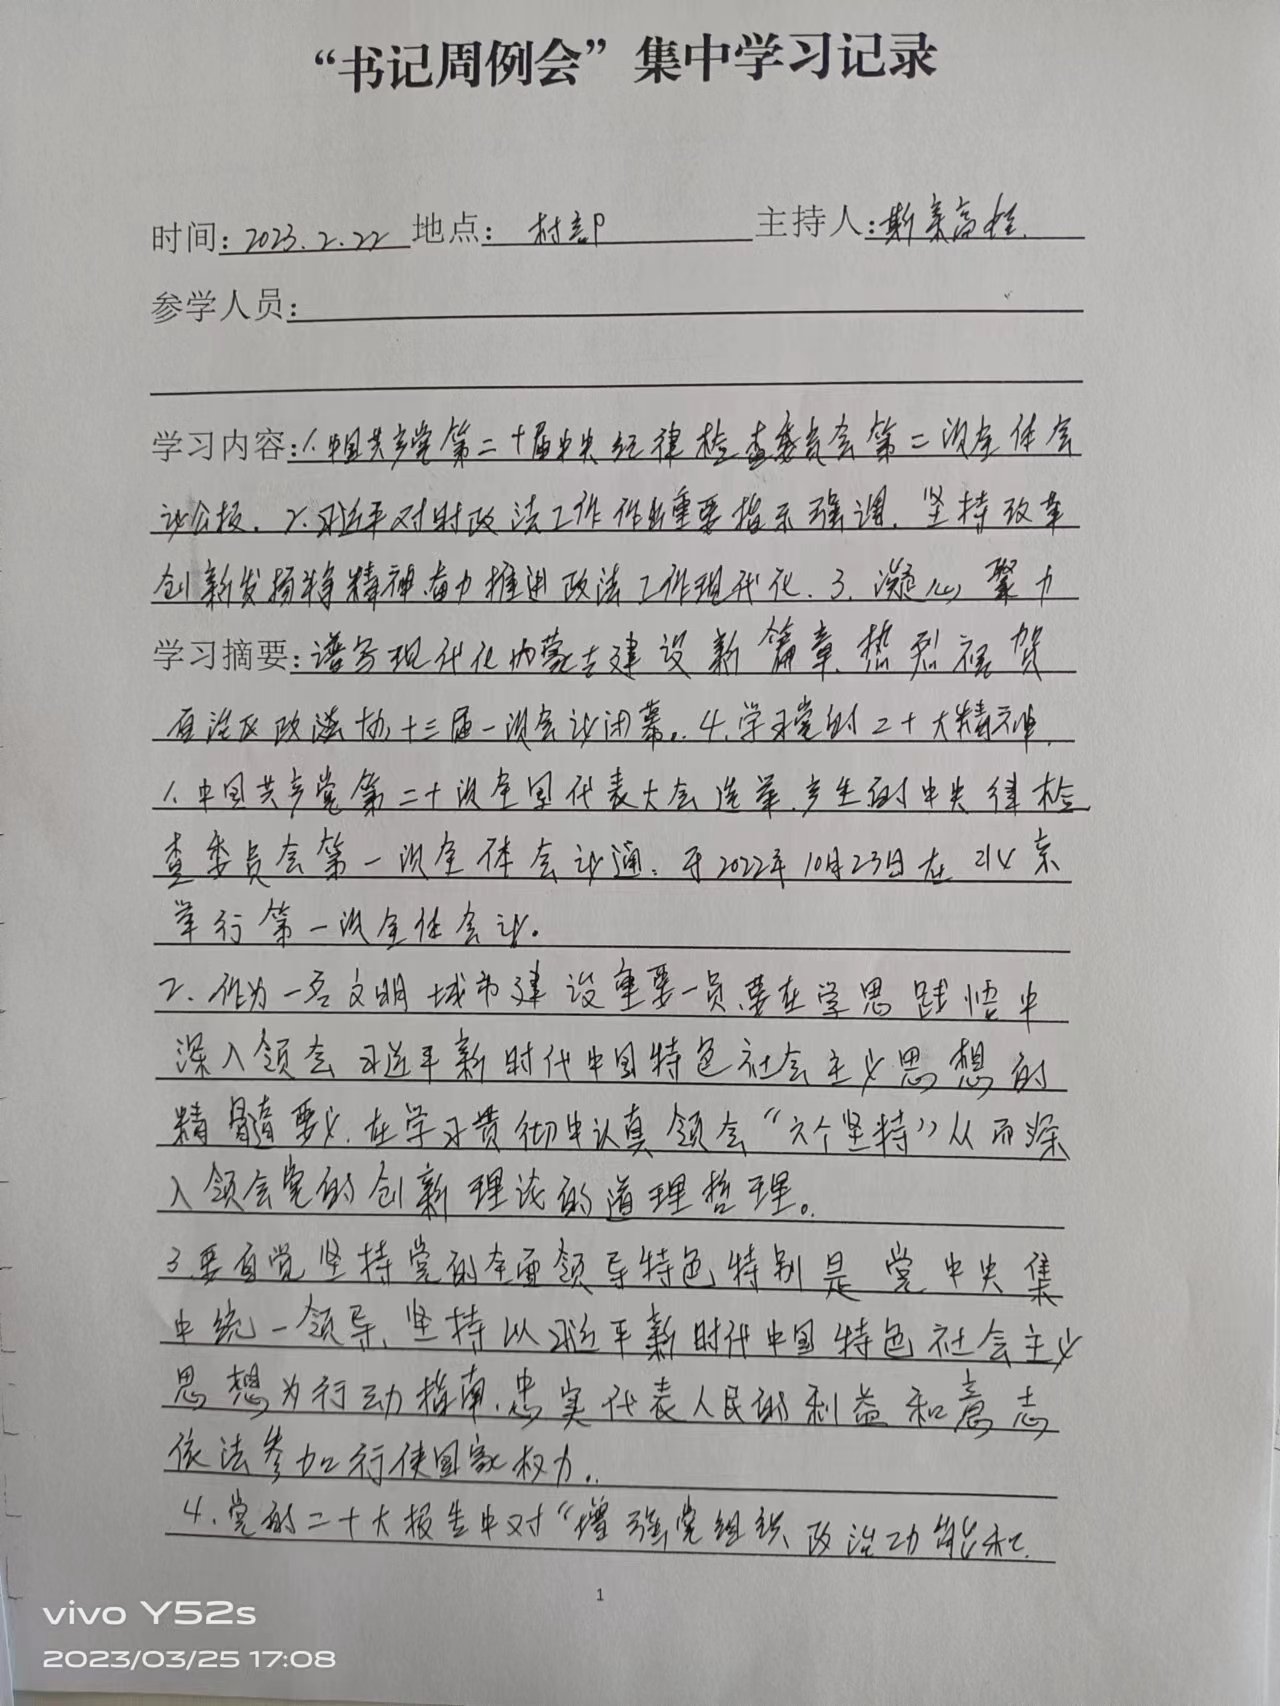 “书记周例会”集中学习记录
时间:2023.2.22 地点: 村部 主持人:斯
参学人员:
学习内容:1.中国共产党第二十届中央纪律检查委员会第二次全体会
议公报. 2.习近平对时政法工作作出重要指示强调. 坚持改革
创新发扬精神奋力推进政法工作现代化. 3. 凝心聚力
学习摘要:谱写现代化内蒙古建设新篇章.热烈祝贺
自治区政法协十三届一次会议闭幕. 4.学习党的二十大精神.
1.中国共产党第二十次全国代表大会选举.产生的中央律检
查委员会第一次全体会议通. 于2022年10月23日在北京
举行第一次全体会议.
2. 作为一名文明城市建设重要一员.要在学思践悟中
深入领会习近平新时代中国特色社会主义思想的
精髓要义.在学习贯彻中认真领会“六个坚持”从而深
入领会党的创新理论的道理哲理。
3.要自觉坚持党的全面领导特色特别是党中央集
中统一领导.坚持以习近平新时代中国特色社会主义
思想为行动指南.忠实代表人民的利益和意志
依法参加行使国家权力.
4.党的二十大报告中对“增强党组织政治功能和
1
vivo Y52s
2023/03/25 17:08